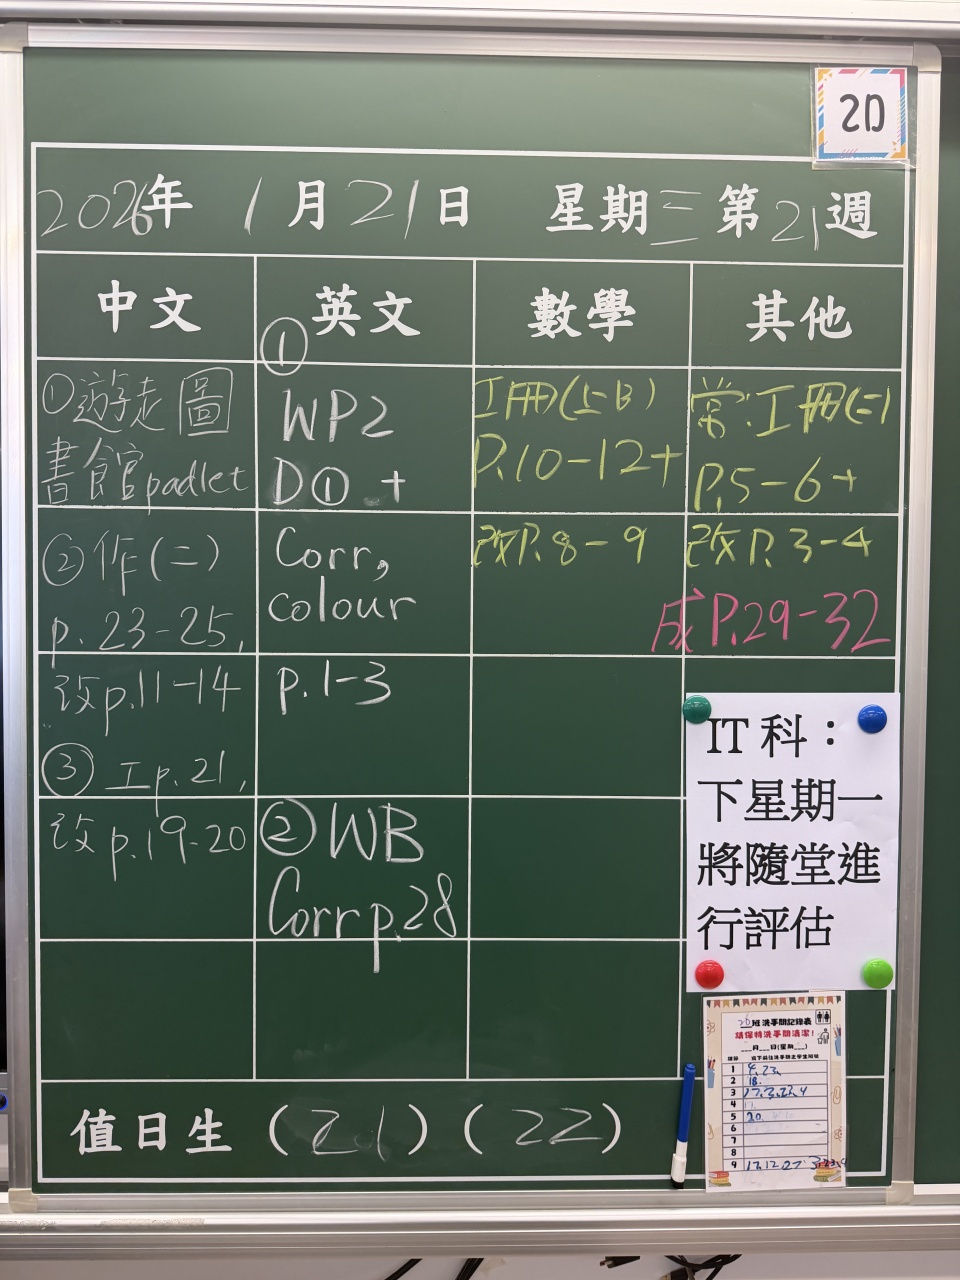 2D
2026年 1月21日 星期三 第21週
中文
英文
數學
其他
①遊走圖
書館padlet
②作(二)
p.23-25,
改p.11-14
③工p.21,
改p.19-20
①
WP2
D① +
Corr,
colour
p.1-3
②WB
Corr p.28
工冊(上B)
P.10-12+
改P.8-9
常:工冊(二)
P.5-6+
改P.3-4
成P.29-32
IT 科：
下星期一
將隨堂進
行評估
2D班洗手間記錄表
請保持洗手間清潔!
___月___日(星期___)
1
2 18.
3
4
5 20
6
7
8
9
值日生 (21) (22)